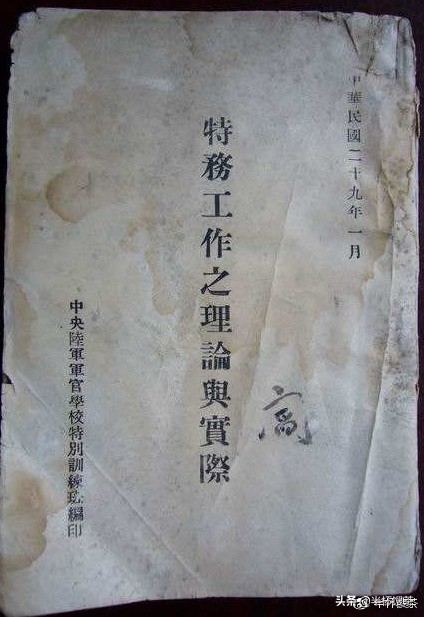 中華民國二十九年一月
特務工作之理論與實際
中央陸軍軍官學校特別訓練班編印
高
头条